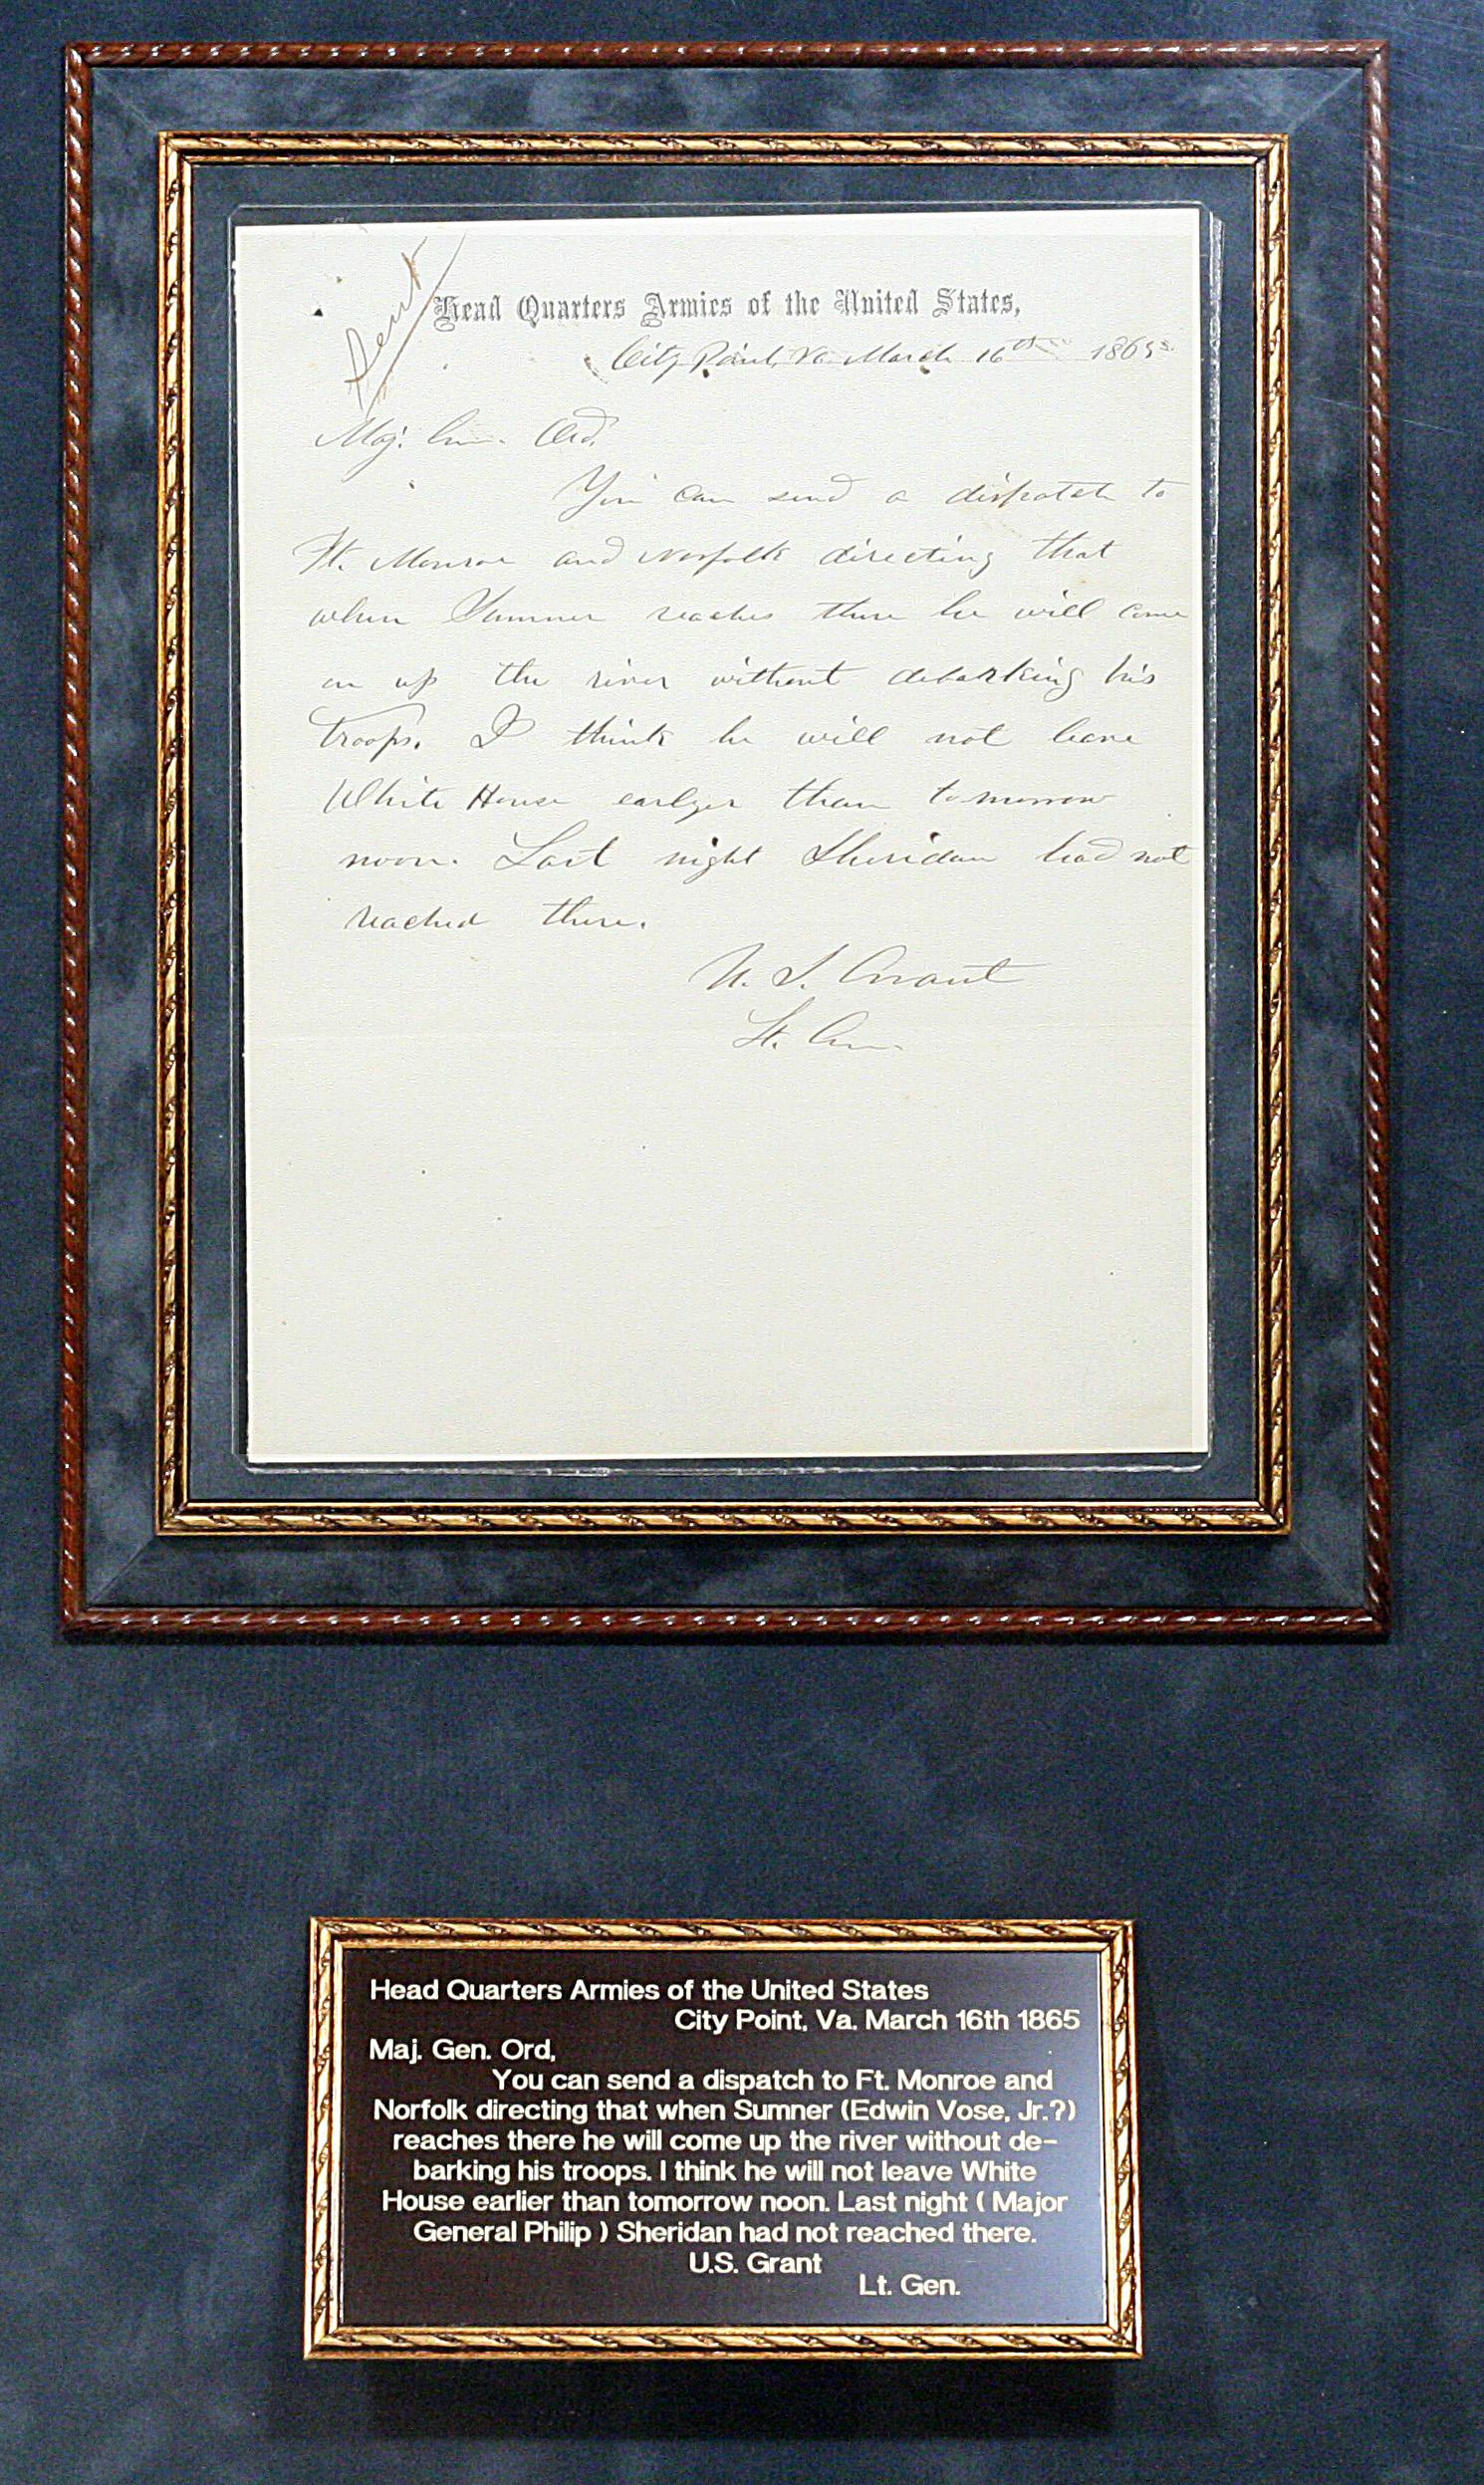 Sent
Head Quarters Armies of the United States,
City Point, Va. March 16th 1865
Maj. Gen. Ord,
You can send a dispatch to
Ft. Monroe and Norfolk directing that
when Sumner reaches there he will come
on up the river without debarking his
troops. I think he will not leave
White House earlyer than to morrow
noon. Last night Sheridan had not
reached there.
U. S. Grant
Lt. Gen.
Head Quarters Armies of the United States
City Point, Va. March 16th 1865
Maj. Gen. Ord,
You can send a dispatch to Ft. Monroe and
Norfolk directing that when Sumner (Edwin Vose, Jr.?)
reaches there he will come up the river without de-
barking his troops. I think he will not leave White
House earlier than tomorrow noon. Last night ( Major
General Philip ) Sheridan had not reached there.
U.S. Grant
Lt. Gen.